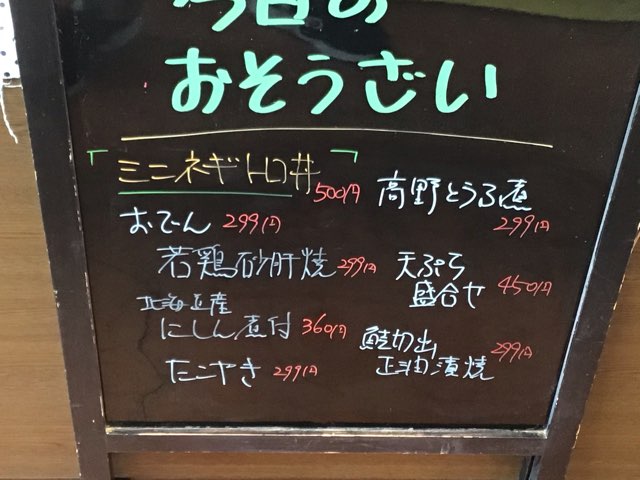 今日の
おそうざい
「ミニネギトロ丼」
500円
おでん 299円
若鶏砂肝焼 299円
北海道産
にしん煮付 360円
たこやき 299円
高野とうふ煮
299円
天ぷら
盛合せ 450円
鮭切出
正油漬焼 299円